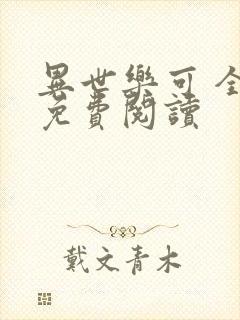 異世樂可 全
免費閱讀
戴文青木